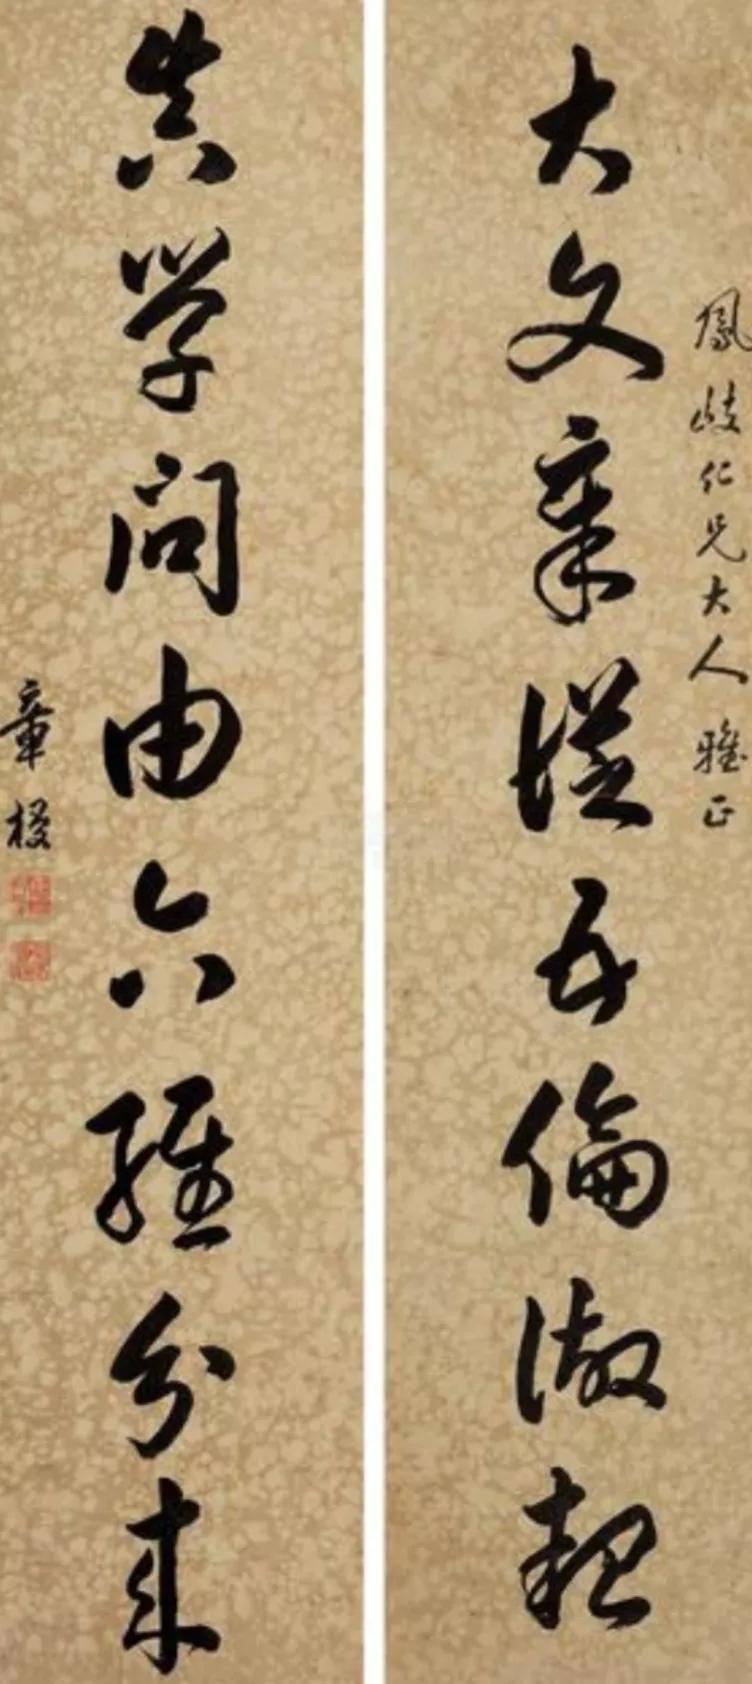 鳳岐仁兄大人雅正
大文章從五倫做起
真學問由六經分來
章梫